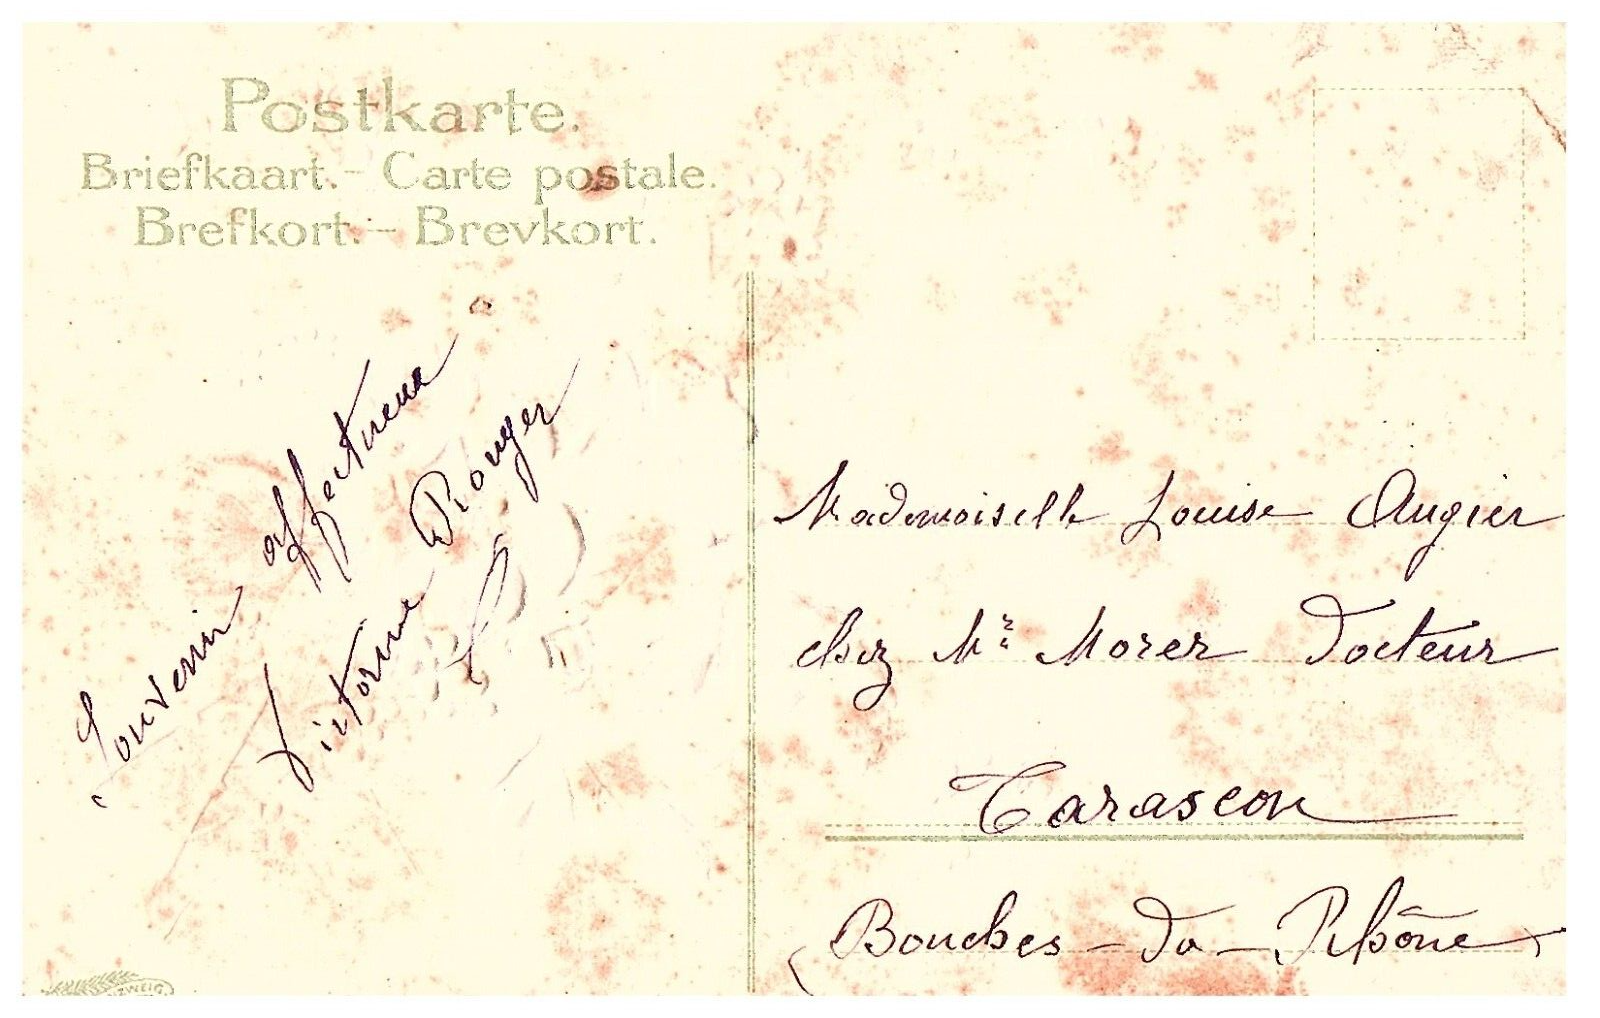 Postkarte.
Briefkaart. - Carte postale.
Brefkort. - Brevkort.
Souvenir affectueux
Victorine Rouger
Mademoiselle Louise Augier
chez Mr Morer Docteur
Tarascon
(Bouches-du-Rhône)
ZWEIG